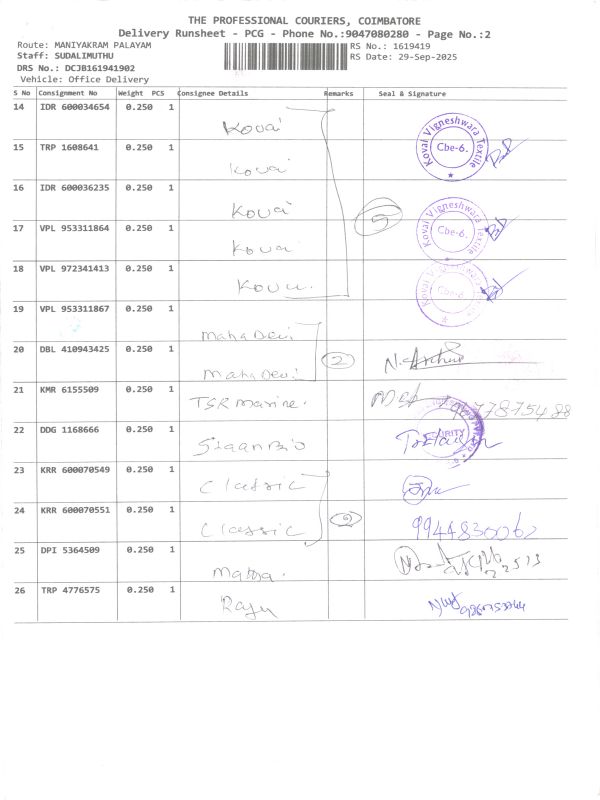 THE PROFESSIONAL COURIERS, COIMBATORE
Delivery Runsheet - PCG - Phone No.:9047080280 - Page No.:2
Route: MANIYAKRAM PALAYAM
RS No.: 1619419
Staff: SUDALIMUTHU
RS Date: 29-Sep-2025
DRS No.: DCJB161941902
Vehicle: Office Delivery
S No Consignment No Weight PCS Consignee Details Remarks Seal & Signature
14 IDR 600034654 0.250 1 Kovai
Kovai Vigneshwara Textile Cbe-6.
15 TRP 1608641 0.250 1 Kovai
16 IDR 600036235 0.250 1 Kovai
5
17 VPL 953311864 0.250 1 Kovai
Kovai Vigneshwara Textile Cbe-6.
18 VPL 972341413 0.250 1
Kovai Vigneshwara Textile Cbe-6.
19 VPL 953311867 0.250 1 Maha Devi
20 DBL 410943425 0.250 1 Maha Devi 2
21 KMR 6155509 0.250 1 TSR Marine.
22 DDG 1168666 0.250 1
23 KRR 600070549 0.250 1 Classic
24 KRR 600070551 0.250 1 Classic 2
25 DPI 5364509 0.250 1
26 TRP 4776575 0.250 1 Raju